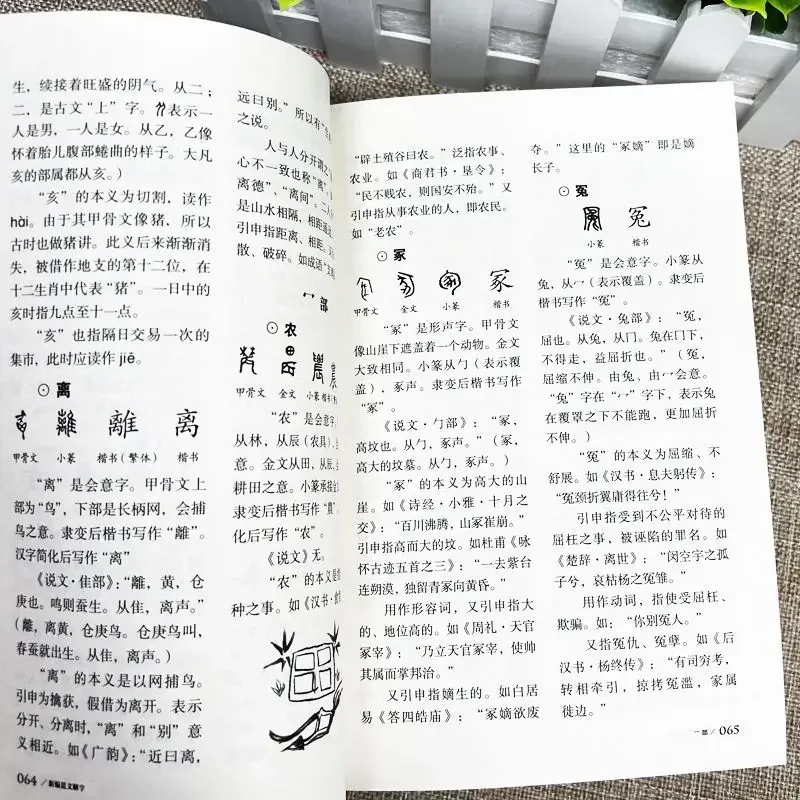 生，续接着旺盛的阴气。从二；
二，是古文“上”字。表示一
人是男，一人是女。从乙，乙像
怀着胎儿腹部蜷曲的样子。大凡
亥的部属都从亥。）
“亥”的本义为切割，读作
hài。由于其甲骨文像猪，所以
古时也做猪讲。此义后来渐渐消
失，被借作地支的第十二位，在
十二生肖中代表“猪”。一日中的
亥时指九点至十一点。
“亥”也指隔日交易一次的
集市，此时应读作 jiē。
⊙离
離 离
甲骨文 小篆 楷书（繁体） 楷书
“离”是会意字。甲骨文上
部为“鸟”，下部是长柄网，会捕
鸟之意。隶变后楷书写作“離”。
汉字简化后写作“离”
《说文·隹部》：“離，黄，仓
庚也。鸣则蚕生。从隹，离声。”
（離，离黄，仓庚鸟。仓庚鸟叫，
春蚕就出生。从隹，离声。）
“离”的本义是以网捕鸟。
引申为擒获，假借为离开。表示
分开、分离时，“离”和“别”意
义相近。如《广韵》：“近曰离，
064／新编说文解字
远曰别。”所以有“
之说。
人与人分开谓之
心不一致也称“离”
离德”、“离间”。二人
是山水相隔，相距遥
引申指距离、相距。
散、破碎。如成语“支
冖部
⊙农
農
甲骨文 金文 小篆 楷书
“农”是会意字
从林，从辰（农具），
意。金文从田，从辰，
耕田之意。小篆承接金
隶变后楷书写作“農”
化后写作“农”。
《说文》无。
“农”的本义是
种之事。如《汉书·食
“辟土殖谷曰农。”泛指农事、
农业。如《商君书·垦令》：
“民不贱农，则国安不殆。”又
引申指从事农业的人，即农民。
如“老农”。
⊙冢
冢
甲骨文 金文 小篆 楷书
“冢”是形声字。甲骨文
像山崖下遮盖着一个动物。金文
大致相同。小篆从勹（表示覆
盖），豖声。隶变后楷书写作
“冢”。
《说文·勹部》：“冢，
高坟也。从勹，豖声。”（冢，
高大的坟墓。从勹，豖声。）
“冢”的本义为高大的山
崖。如《诗经·小雅·十月之
交》：“百川沸腾，山冢崔崩。”
引申指高而大的坟。如杜甫《咏
怀古迹五首之三》：“一去紫台
连朔漠，独留青冢向黄昏。”
用作形容词，又引申指大
的、地位高的。如《周礼·天官
冢宰》：“乃立天官冢宰，使帅
其属而掌邦治。”
又引申指嫡生的。如白居
易《答四皓庙》：“冢嫡欲废
夺。”这里的“冢嫡”即是嫡
长子。
⊙冤
冤
小篆 楷书
“冤”是会意字。小篆从
兔，从冖（表示覆盖）。隶变后
楷书写作“冤”。
《说文·兔部》：“冤，
屈也。从兔，从冂。兔在冂下，
不得走，益屈折也。”（冤，
屈缩不伸。由兔、由冖会意。
“兔”字在“冖”字下，表示兔
在覆罩之下不能跑，更加屈折
不伸。）
“冤”的本义为屈缩、不
舒展。如《汉书·息夫躬传》：
“冤颈折翼庸得往兮！”
引申指受到不公平对待的
屈枉之事，被诬陷的罪名。如
《楚辞·离世》：“闵空宇之孤
子兮，哀枯杨之冤雏。”
用作动词，指使受屈枉、
欺骗。如：“你别冤人。”
又指冤仇、冤孽。如《后
汉书·杨终传》：“有司穷考，
转相牵引，掠拷冤滥，家属
徙边。”
065